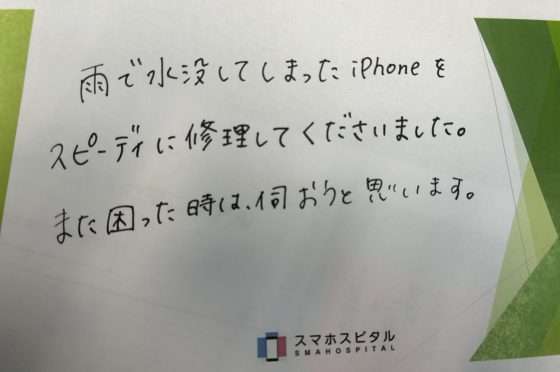 雨で水没してしまったiPhoneを
スピーディに修理してくださいました。
また困った時は、伺おうと思います。
スマホスピタル
SMAHOSPITAL